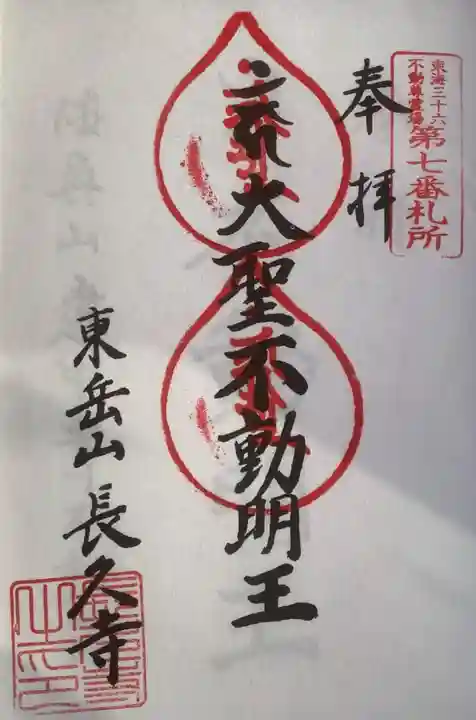 東海三十六
不動尊霊場
第七番札所
奉拝
大聖不動明王
東岳山長久寺